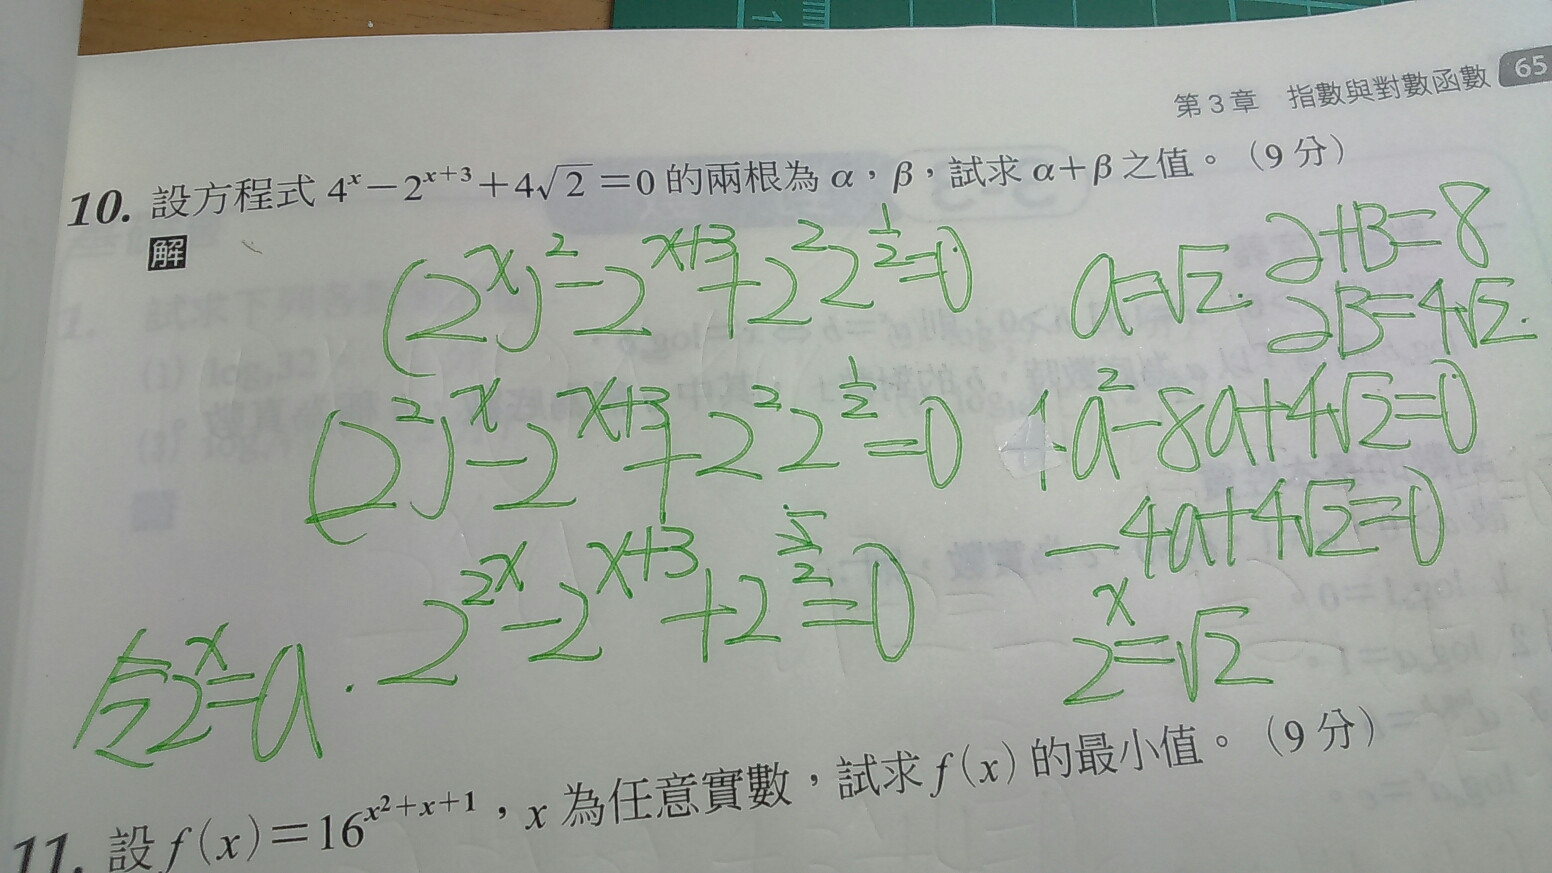 第3章 指數與對數函數 65
10. 設方程式 4^x－2^{x+3}+4√2=0 的兩根為 α，β，試求 α+β 之值。（9分）
解
(2^x)^2-2^{x+3}+2^2 2^{1/2}=0
(2^2)^x-2^{x+3}+2^2 2^{1/2}=0
2^{2x}-2^{x+3}+2^{5/2}=0
令2^x=a.
a=√2.
2+B=8
2B=4√2.
1a^2-8a+4√2=0
-4a+4√2=0
2^x=√2
11. 設 f(x)=16^{x^2+x+1}，x 為任意實數，試求 f(x) 的最小值。（9分）